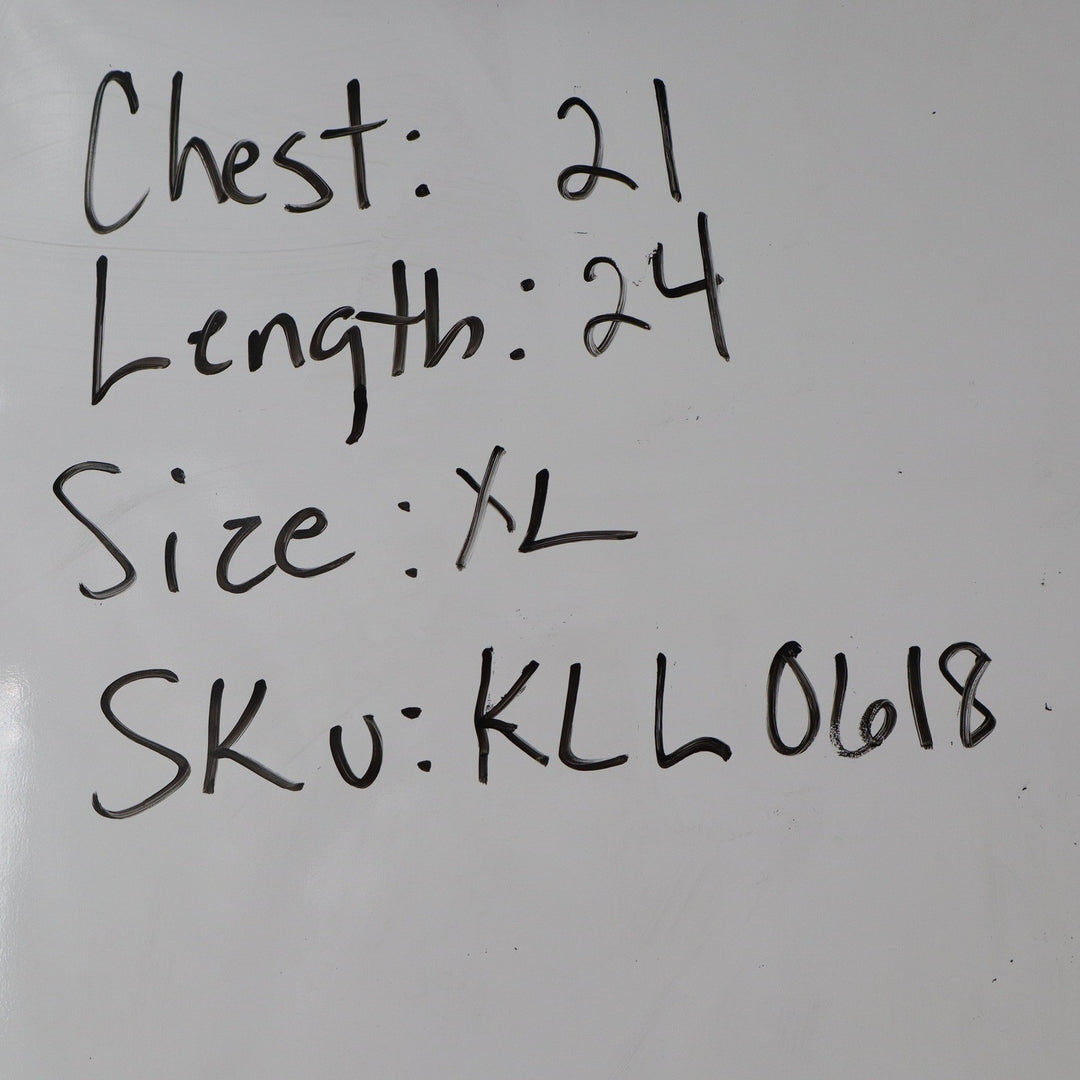 Chest: 21
Length: 24
Size: XL
SKU: KLL0618